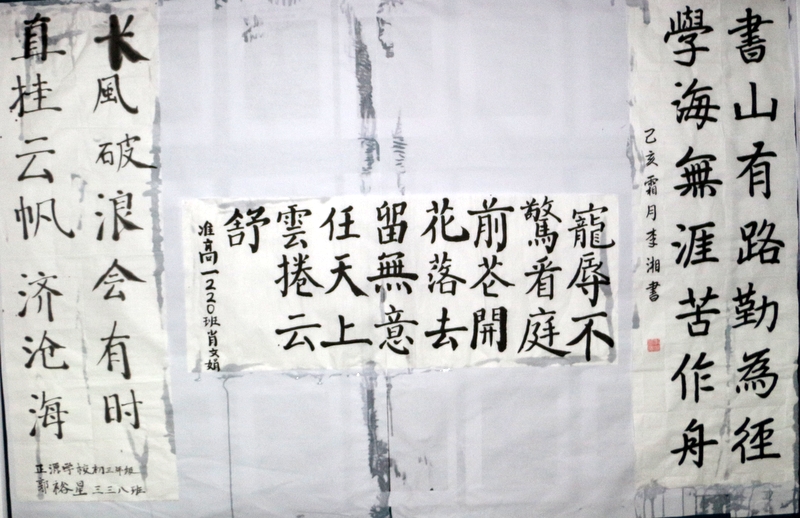 書山有路勤為徑
學海無涯苦作舟
乙亥霜月李湘書
寵辱不
驚看庭
前芲開
花落去
留無意
任天上
雲捲云
舒
准高一220班肖文娟
长風破浪会有时
直挂云帆济沧海
正源学校初三年级
郭裕星 三三八班